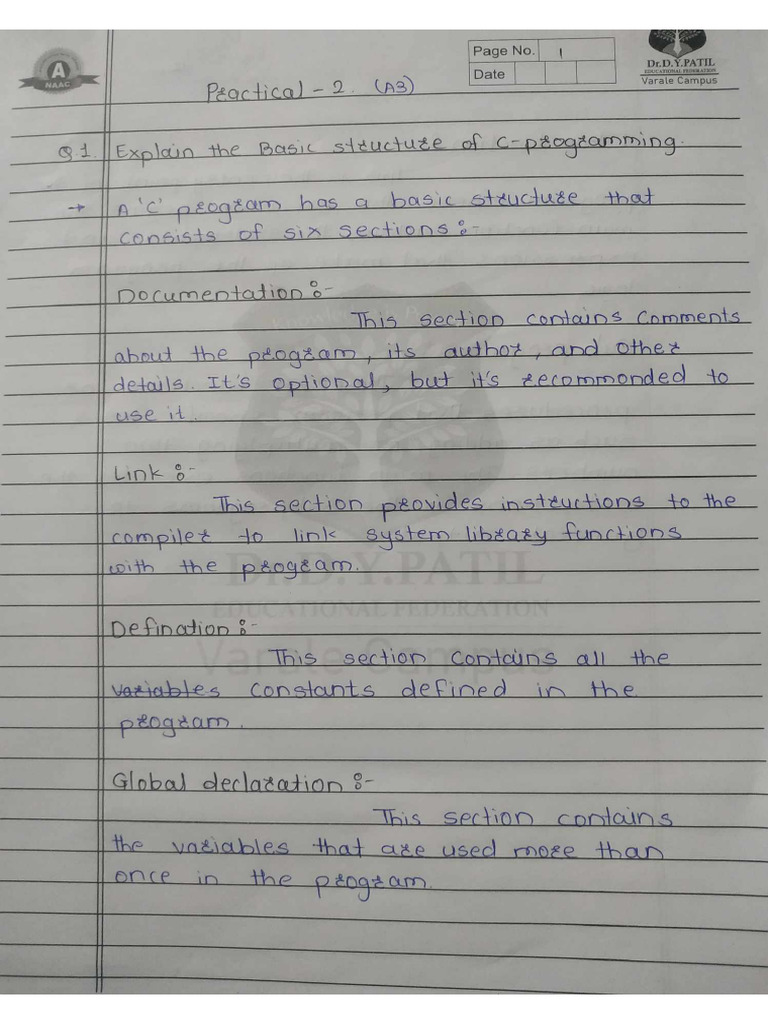 A
NAAC
Page No. 1
Date
Dr.D.Y.PATIL
EDUCATIONAL FEDERATION
Varale Campus
Practical - 2. (A3)
Q1. Explain the Basic structure of C-programming.
→ A 'C' program has a basic structure that
consists of six sections:-
Documentation:-
This section contains comments
about the program, its author, and other
details. It's optional, but it's recommonded to
use it.
Link:-
This section provides instructions to the
compiler to link system library functions
with the program.
Dr.D.Y.PATIL
EDUCATIONAL FEDERATION
Defination:-
Varale Campus
This section contains all the
variables constants defined in the
program.
Global declaration:-
This section contains
the variables that are used more than
once in the program.